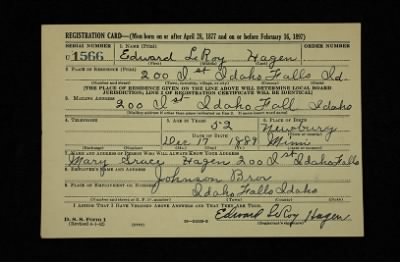 REGISTRATION CARD—(Men born on or after April 28, 1877 and on or before February 16, 1897)
SERIAL NUMBER 1. NAME (Print) ORDER NUMBER
U 1566 Edward LeRoy Hagen
(First) (Middle) (Last)
2. PLACE OF RESIDENCE (Print)
200 I st Idaho Falls Id.
(Number and street) (Town, township, village, or city) (County) (State)
[THE PLACE OF RESIDENCE GIVEN ON THE LINE ABOVE WILL DETERMINE LOCAL BOARD
JURISDICTION; LINE 2 OF REGISTRATION CERTIFICATE WILL BE IDENTICAL]
3. MAILING ADDRESS
200 I st Idaho Fall Idaho
[Mailing address if other than place indicated on line 2. If same insert word same]
4. TELEPHONE 5. AGE IN YEARS 6. PLACE OF BIRTH
52 Newbury
DATE OF BIRTH
Dec 17 1889 Minn
(Mo.) (Day) (Yr.) (State or country)
7. NAME AND ADDRESS OF PERSON WHO WILL ALWAYS KNOW YOUR ADDRESS
Mary Grace Hagen 200 I st Idaho Falls
8. EMPLOYER'S NAME AND ADDRESS
Johnson Bros
9. PLACE OF EMPLOYMENT OR BUSINESS
Idaho Falls Idaho
(Number and street or R. F. D. number) (Town) (County) (State)
I AFFIRM THAT I HAVE VERIFIED ABOVE ANSWERS AND THAT THEY ARE TRUE.
D. S. S. Form 1
(Revised 4-1-42) (over) Edward LeRoy Hagen
(Registrant's signature)